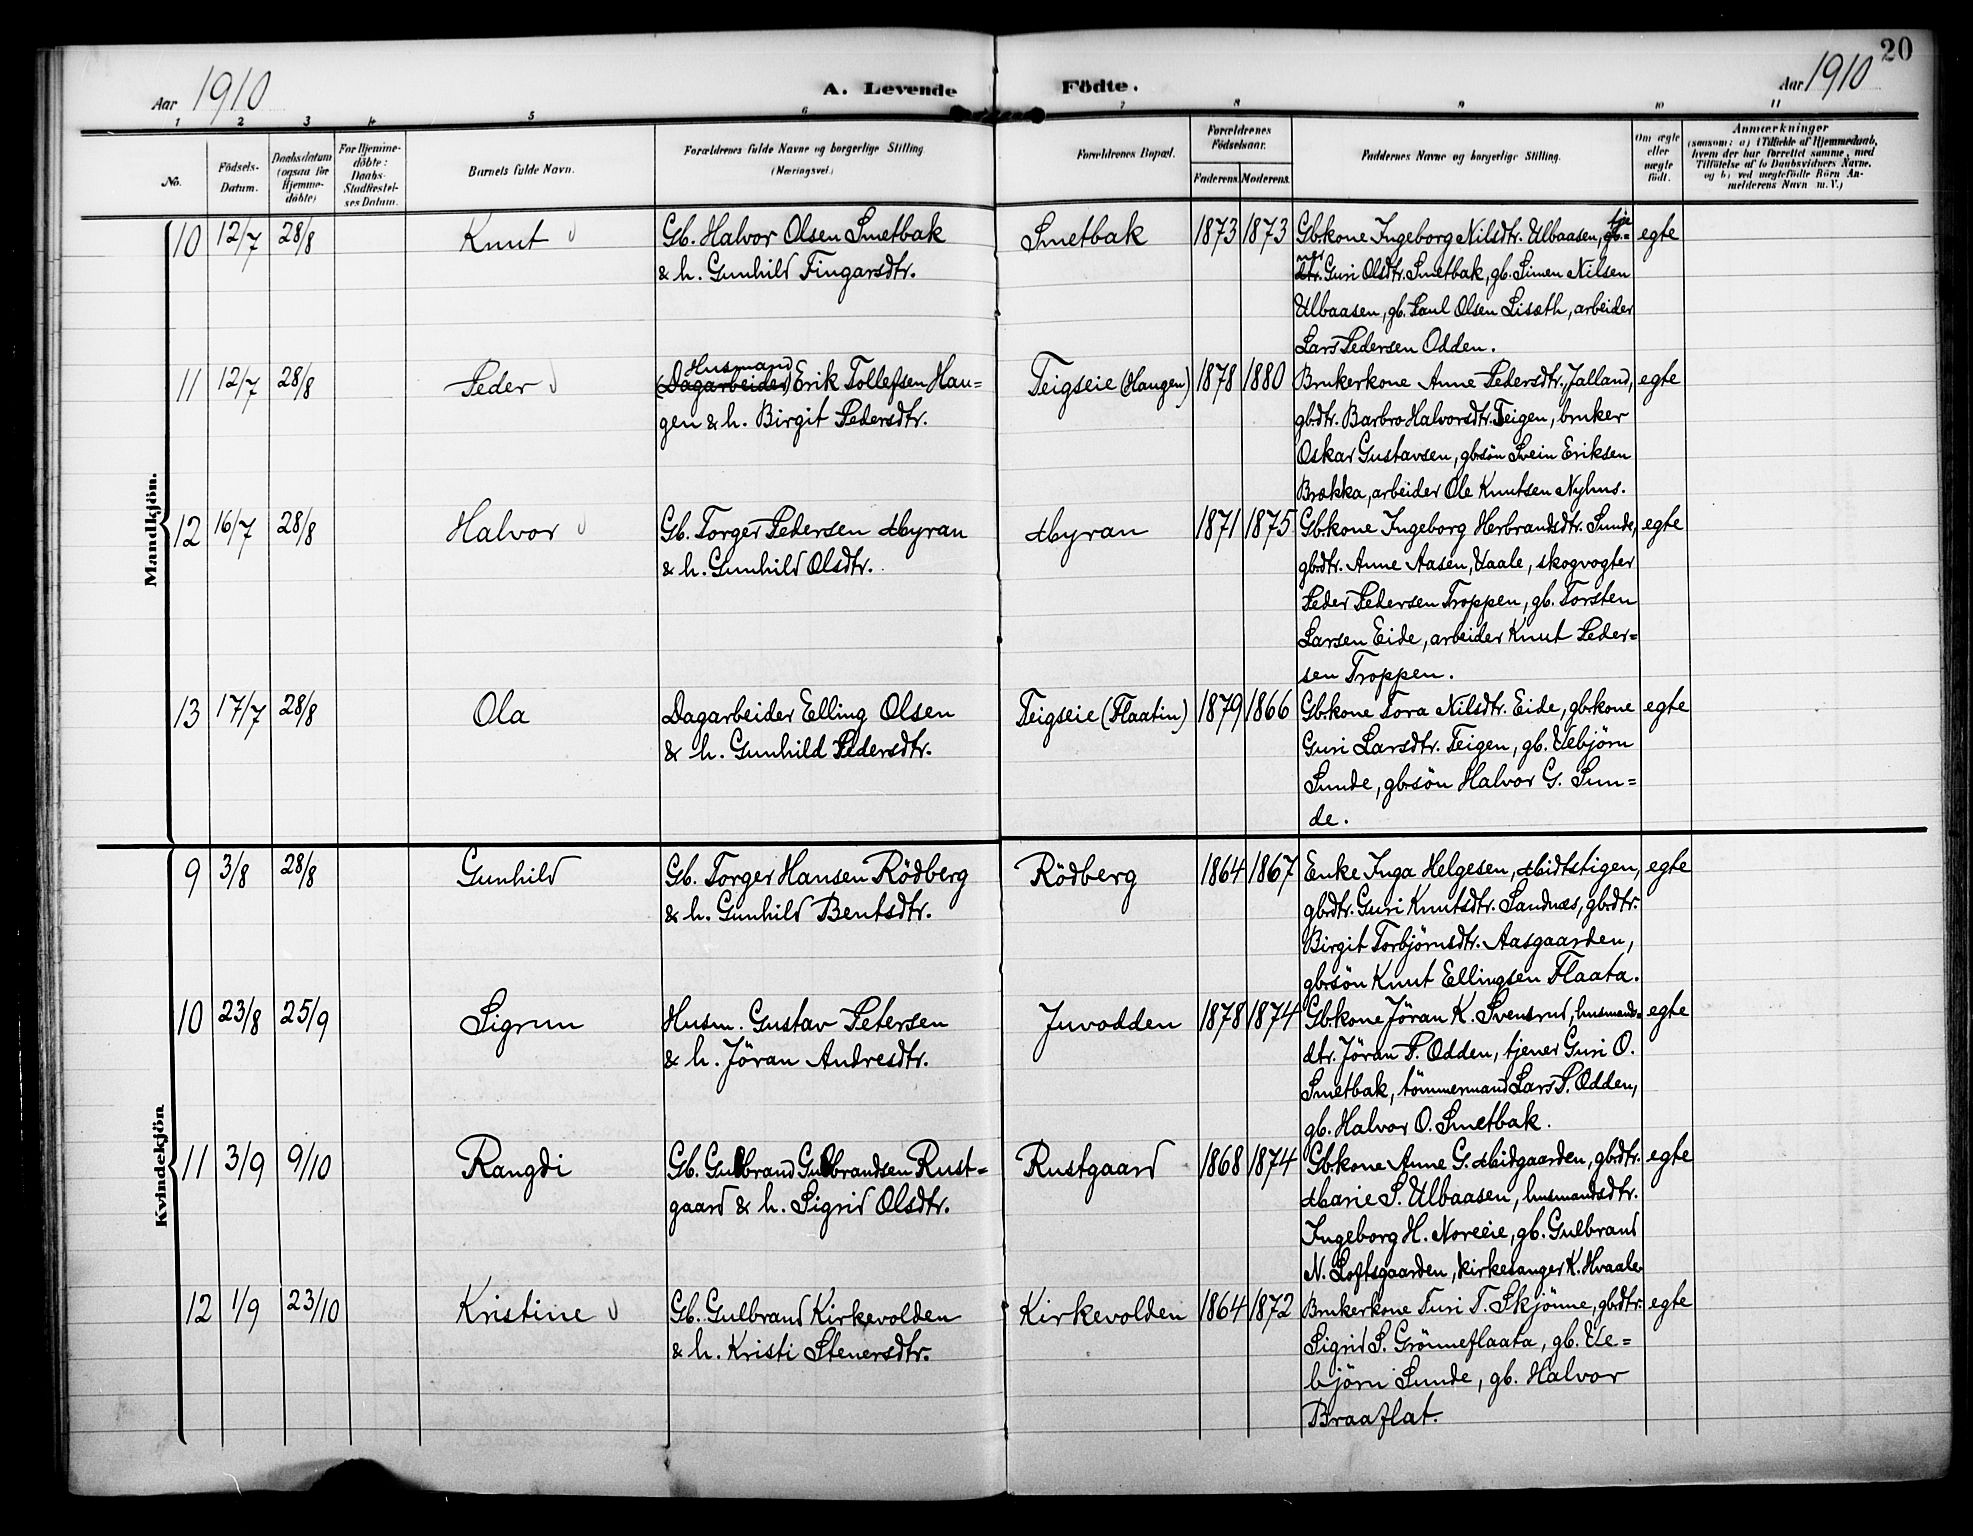 20
Aar 1910
A. Levende Födte.
Aar 1910
1 2 3 4 5 6 7 8 9 10 11
No.
Födsels-
Datum.
Daabsdatum
(ogsaa for
Hjemme-
döbte)
For Hjemme-
döbte:
Daabs-
Stadfæstel-
ses Datum.
Barnets fulde Navn.
Forældrenes fulde Navne og borgerlige Stilling
(Næringsvei.)
Forældrenes Bopæl.
Forældrenes
Födselsaar.
Faderens. Moderens.
Faddernes Navne og borgerlige Stilling.
Om ægte
eller
uægte
födt.
Anmærkninger
(saasom: a) i Tilfælde af Hjemmedaab,
hvem der har forrettet samme, med
Tilföielse af to Daabsvidners Navne,
og b) ved uægtefödte Börn An-
melderens Navn m. V.)
Mandkjön.
10 12/7 28/8 Knut
Gb. Halvor Olsen Smetbak
& h. Gunhild Fingarsdtr.
Smetbak 1873 1873
Gbkone Ingeborg Nilsdtr. Ulbaasen, tje
gb.=
ner
dtr. Guri Olsdtr. Smetbak, gb. Simen Nilsen
Ulbaasen, gb. Paul Olsen Liseth, arbeider
Lars Pedersen Odden.
egte
11 12/7 28/8 Peder
Husmand
(Dagarbeider) Erik Tollefsen Hau-
gen & h. Birgit Pedersdtr.
Teigseie (Haugen) 1878 1880
Brukerkone Anne Pedersdtr. Jalland,
gbdtr. Barbro Halvorsdtr. Teigen, bruker
Oskar Gustavsen, gbsön Svein Eriksen
Brækka, arbeider Ole Knutsen Nyhus.
egte
12 16/7 28/8 Halvor
Gb. Torger Pedersen Myran
& h. Gunhild Olsdtr.
Myran 1871 1875
Gbkone Ingeborg Herbrandsdtr. Sunde,
gbdtr. Anne Aasen, Vaale, skogvogter
Peder Pedersen Troppen, gb. Torsten
Larsen Eide, arbeider Knut Peder=
sen Troppen.
egte
13 17/7 28/8 Ola
Dagarbeider Elling Olsen
& h. Gunhild Pedersdtr.
Teigseie (Flaatin) 1879 1866
Gbkone Tora Nilsdtr. Eide, gbkone
Guri Larsdtr. Teigen, gb. Vebjörn
Sunde, gbsön Halvor G. Sun=
de.
egte
Kvindekjön
9 3/8 28/8 Gunhild
Gb. Torger Hansen Rödberg
& h. Gunhild Bentsdtr.
Rödberg 1864 1867
Enke Inga Helgesen, Midtstigen,
gbdtr. Guri Knutsdtr. Sandnæs, gbdtr.
Birgit Torbjörnsdtr. Aasgaarden,
gbsön Knut Ellingsen Flaata.
egte
10 23/8 25/9 Sigrun
Husm. Gustav Petersen
& h. Jöran Andresdtr.
Juvodden 1878 1874
Gbkone Jöran K. Svensrud, husmands=
dtr. Jöran P. Odden, tjener Guri O.
Smetbak, tömmermand Lars P. Odden,
gb. Halvor O. Smetbak.
egte
11 3/9 9/10 Rangdi
Gb. Gulbrand Gulbrandsen Rust=
gaard & h. Sigrid Olsdtr.
Rustgaard 1868 1874
Gbkone Anne G. Midgaarden, gbdtr.
Marie S. Ulbaasen, husmandsdtr.
Ingeborg H. Noreeie, gb. Gulbrand
N. Loftsgaarden, kirkesanger K. Hvaale.
egte
12 1/9 23/10 Kristine
Gb. Gulbrand Kirkevolden
& h. Kristi Stenersdtr.
Kirkevolden 1864 1872
Brukerkone Turi T. Skjönne, gbdtr.
Sigrid S. Grönneflaata, gb. Ve=
björn Sunde, gb. Halvor
Braaflat.
egte